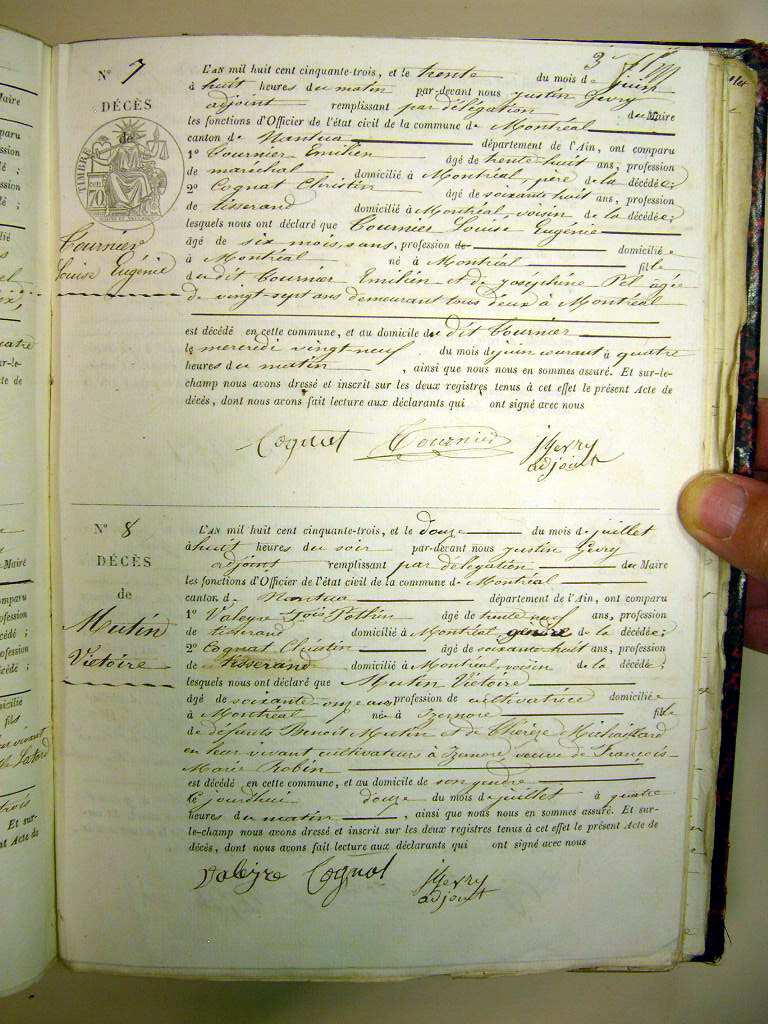 N° 7
DÉCÈS
de
TIMBRE
70
Tournier
Louise Eugénie
L'AN mil huit cent cinquante-trois, et le trente du mois de juin
à huit heures du matin par-devant nous Justin Gevry
adjoint remplissant par délégation du Maire
les fonctions d'Officier de l'état civil de la commune de Montréal
canton de Nantua département de l'Ain, ont comparu
1° Tournier Emilien âgé de trente huit ans, profession
de maréchal domicilié à Montréal père de la décédée;
2° Cognat Christin âgé de soixante huit ans, profession
de tisserand domicilié à Montréal, voisin de la décédée;
lesquels nous ont déclaré que Tournier Louise Eugénie
âgé de six mois, sans, profession de domiciliée
à Montréal né à Montréal fille
du dit Tournier Emilien et de Joséphine Pel âgée
de vingt-sept ans demeurant tous deux à Montréal
est décédé en cette commune, et au domicile du dit Tournier
le mercredi vingt neuf du mois de juin courant à quatre
heures du matin, ainsi que nous nous en sommes assuré. Et sur-le-
champ nous avons dressé et inscrit sur les deux registres tenus à cet effet le présent Acte de
décès, dont nous avons fait lecture aux déclarants qui ont signé avec nous
Cognat Tournier J Gevry
adjoint
N° 8
DÉCÈS
de
Mutin
Victoire
L'AN mil huit cent cinquante-trois, et le douze du mois de juillet
à huit heures du soir par-devant nous Justin Gevry
adjoint remplissant par délégation du Maire
les fonctions d'Officier de l'état civil de la commune de Montréal
canton de Nantua département de l'Ain, ont comparu
1° Valeyre Pothin âgé de trente neuf ans, profession
de tisserand domicilié à Montréal gendre de la décédée;
2° Cognat Christin âgé de soixante huit ans, profession
de tisserand domicilié à Montréal voisin de la décédée;
lesquels nous ont déclaré que Mutin Victoire
âgé de soixante onze ans profession de cultivatrice domiciliée
à Montréal née à Izernore fille
de défunts Benoit Mutin et de Thérèze Michaillard
en leur vivant cultivateurs à Izernore, veuve de François
Marie Robin
est décédé en cette commune, et au domicile de son gendre
Ce jourdhui douze du mois de juillet à quatre
heures du matin, ainsi que nous nous en sommes assuré. Et sur-
le-champ nous avons dressé et inscrit sur les deux registres tenus à cet effet le présent Acte de
décès, dont nous avons fait lecture aux déclarants qui ont signé avec nous
Valeyre Cognat J Gevry
adjoint